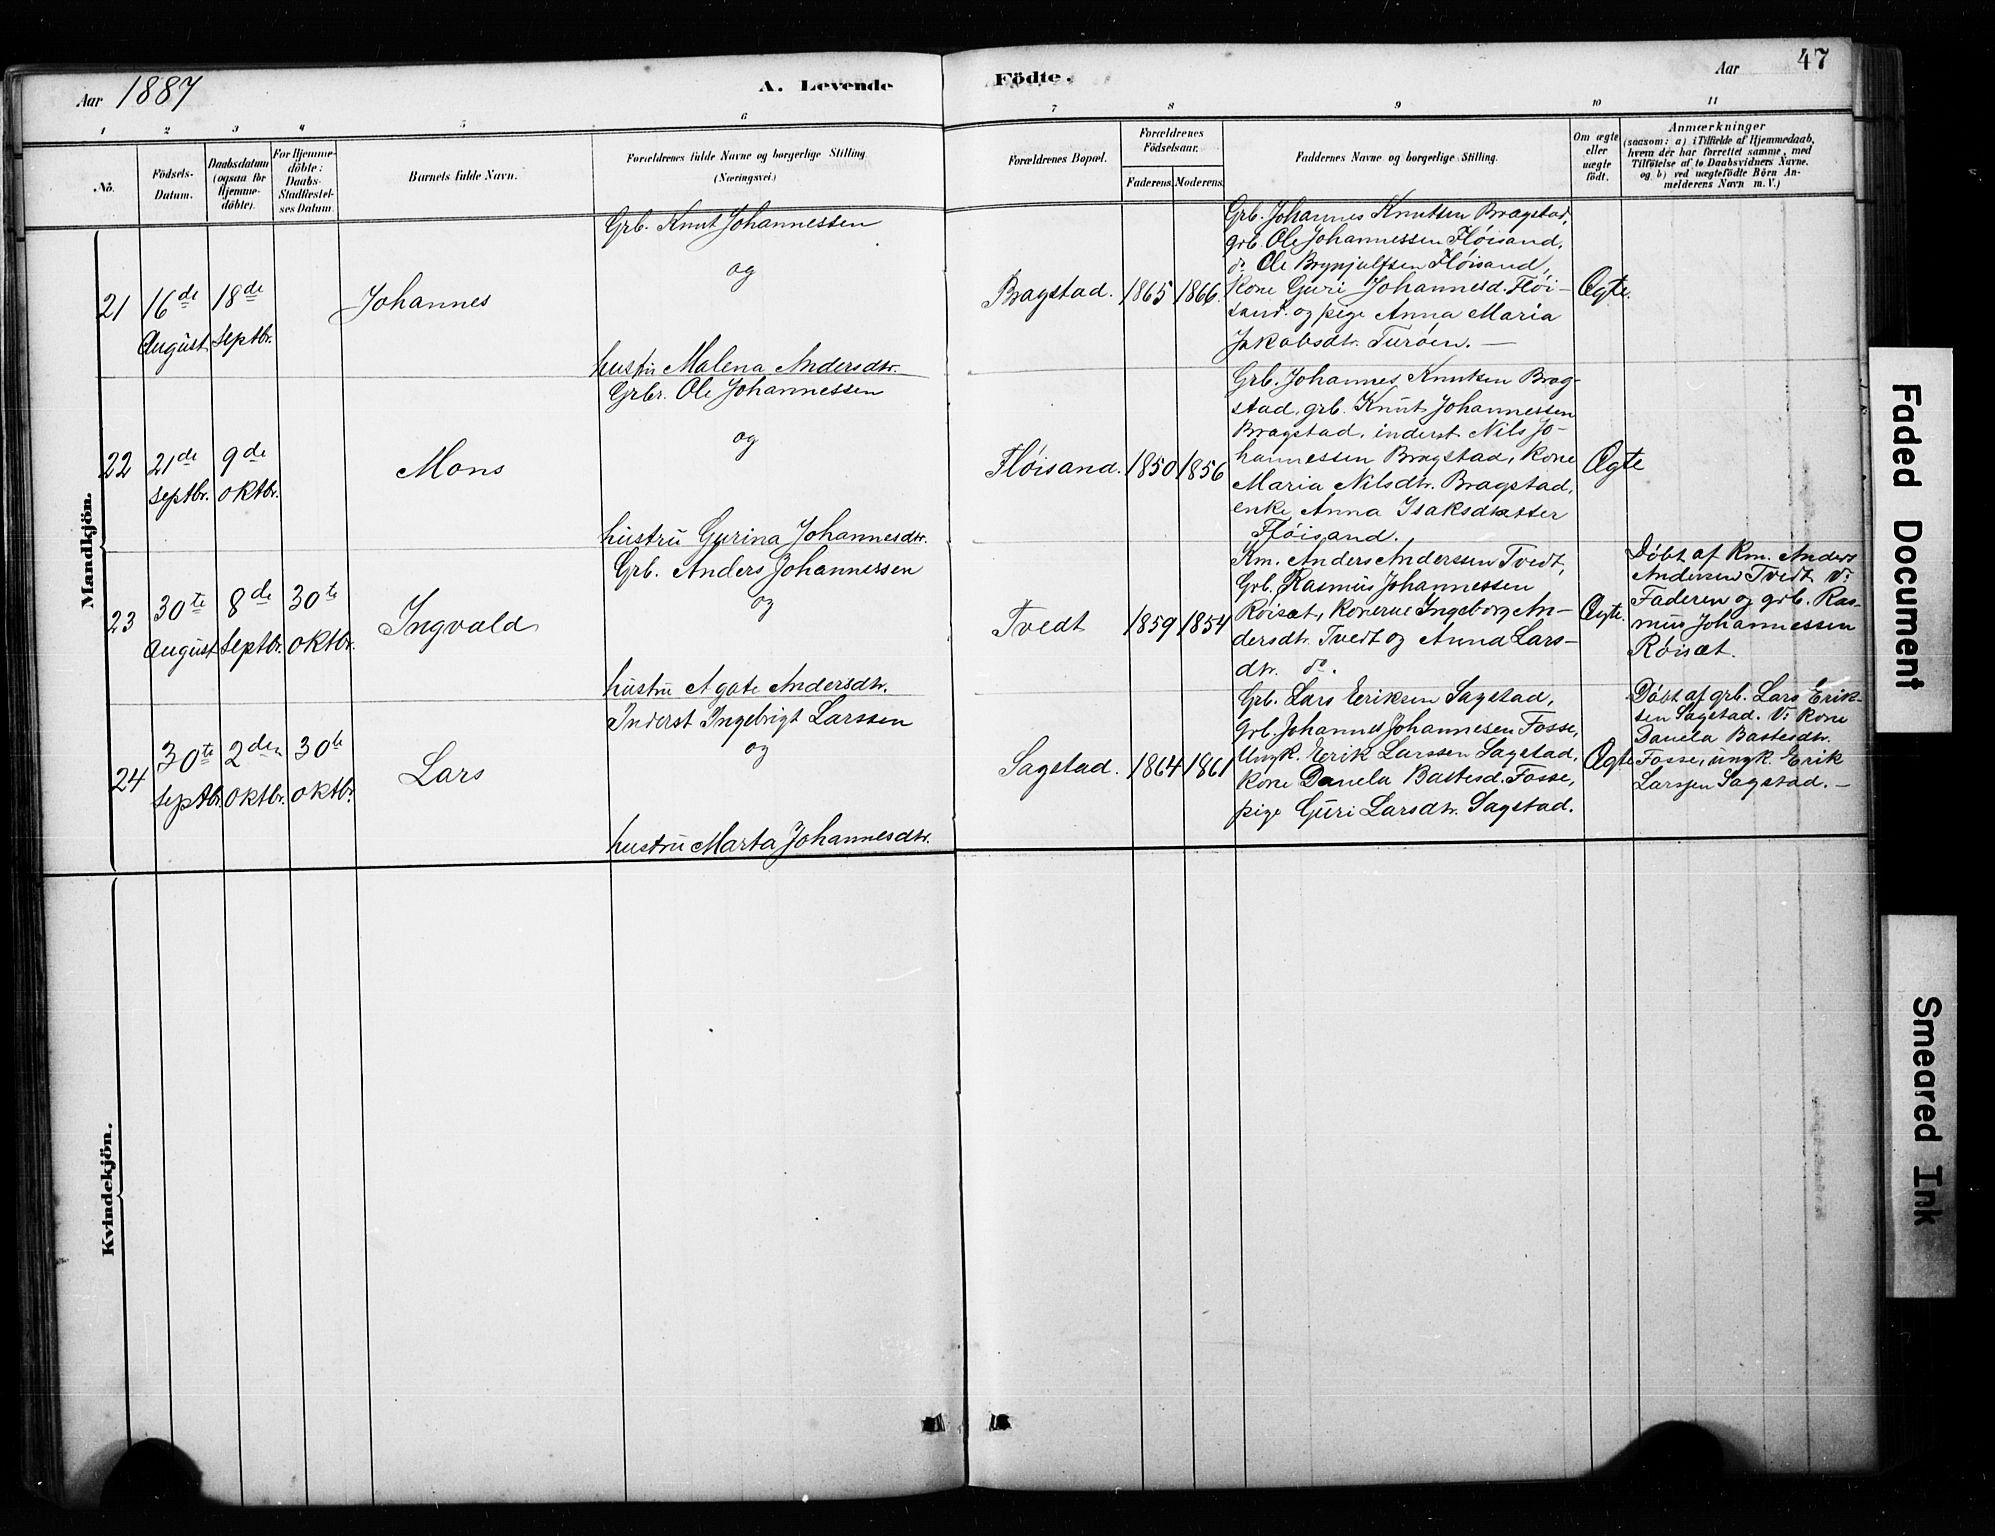 Aar 1887
A. Levende
Födte.
Aar
47
1
2
3
4
5
6
7
8
9
10
11
No.
Födsels-
Datum.
Daabsdatum
(ogsaa for
Hjemme-
döbte).
For Hjemme-
döbte:
Daabs-
Stadfæstel-
ses Datum.
Barnets fulde Navn.
Forældrenes fulde Navne og borgerlige Stilling
(Næringsvei.)
Forældrenes Bopæl.
Forældrenes
Födselsaar.
Faderens.
Moderens.
Faddernes Navne og borgerlige Stilling.
Om ægte
eller
uægte
födt.
Anmærkninger
(saasom: a) i Tilfælde af Hjemmedaab,
hvem der har forrettet samme, med
Tilföielse af to Daabsvidners Navne,
og b) ved uægtefödte Börn An-
melderens Navn m. V.)
Mandkjön.
21
16de
August
18de
Septbr.
Johannes
Grb. Knut Johannessen
og
hustru Malena Andersdtr.
Bragstad.
1865
1866.
Grb. Johannes Knutsen Bragstad,
grb. Ole Johannessen Fløisand,
do. Ole Brynjulfsen Fløisand,
Kone Guri Johannesd. Fløi-
sand. og pige Anna Maria
Jakobsdtr. Turøen. —
Ægte.
22
21de
Septbr.
9de
oktbr.
Mons
Grbr. Ole Johannessen
og
hustru Gurina Johannesdtr.
Fløisand.
1850
1856
Grb. Johannes Knutsen Brag-
stad, grb. Knut Johannessen
Bragstad, inderst Nils Jo-
hannessen Bragstad, Kone
Maria Nilsdtr. Bragstad,
enke Anna Isaksdatter
Fløisand.
Ægte
23
30te
August
8de
Septbr.
30te
oktbr.
Ingvald
Grb. Anders Johannessen
og
hustru Agate Andersdtr.
Tvedt
1859
1854
Km. Anders Andersen Tvedt,
Grb. Rasmus Johannessen
Røisæt, Konerne Ingeborg An-
dersdtr. Tvedt og Anna Lars-
dtr. do.
Ægte.
Døbt af Km. Anders
Andersen Tvedt V:
Faderen og grb. Ras-
mus Johannessen
Røisæt.
24
30te
Septbr.
2den
Oktbr.
30te
oktbr.
Lars
Inderst Ingebrigt Larssen
og
hustru Marta Johannesdtr.
Sagstad.
1864
1861
Grb. Lars Eriksen Sagstad,
grb. Johannes Johannesen Fosse,
Ungk. Erik Larssen Sagstad,
Kone Danela Bastesd. Fosse,
pige Guri Larsdtr. Sagstad.
Ægte
Døbt af grb. Lars Erik-
sen Sagstad. V: Kone
Danela Bastesdtr.
Fosse, ungk. Erik
Larssen Sagstad. —
Kvindekjön.
Faded Document
Smeared Ink